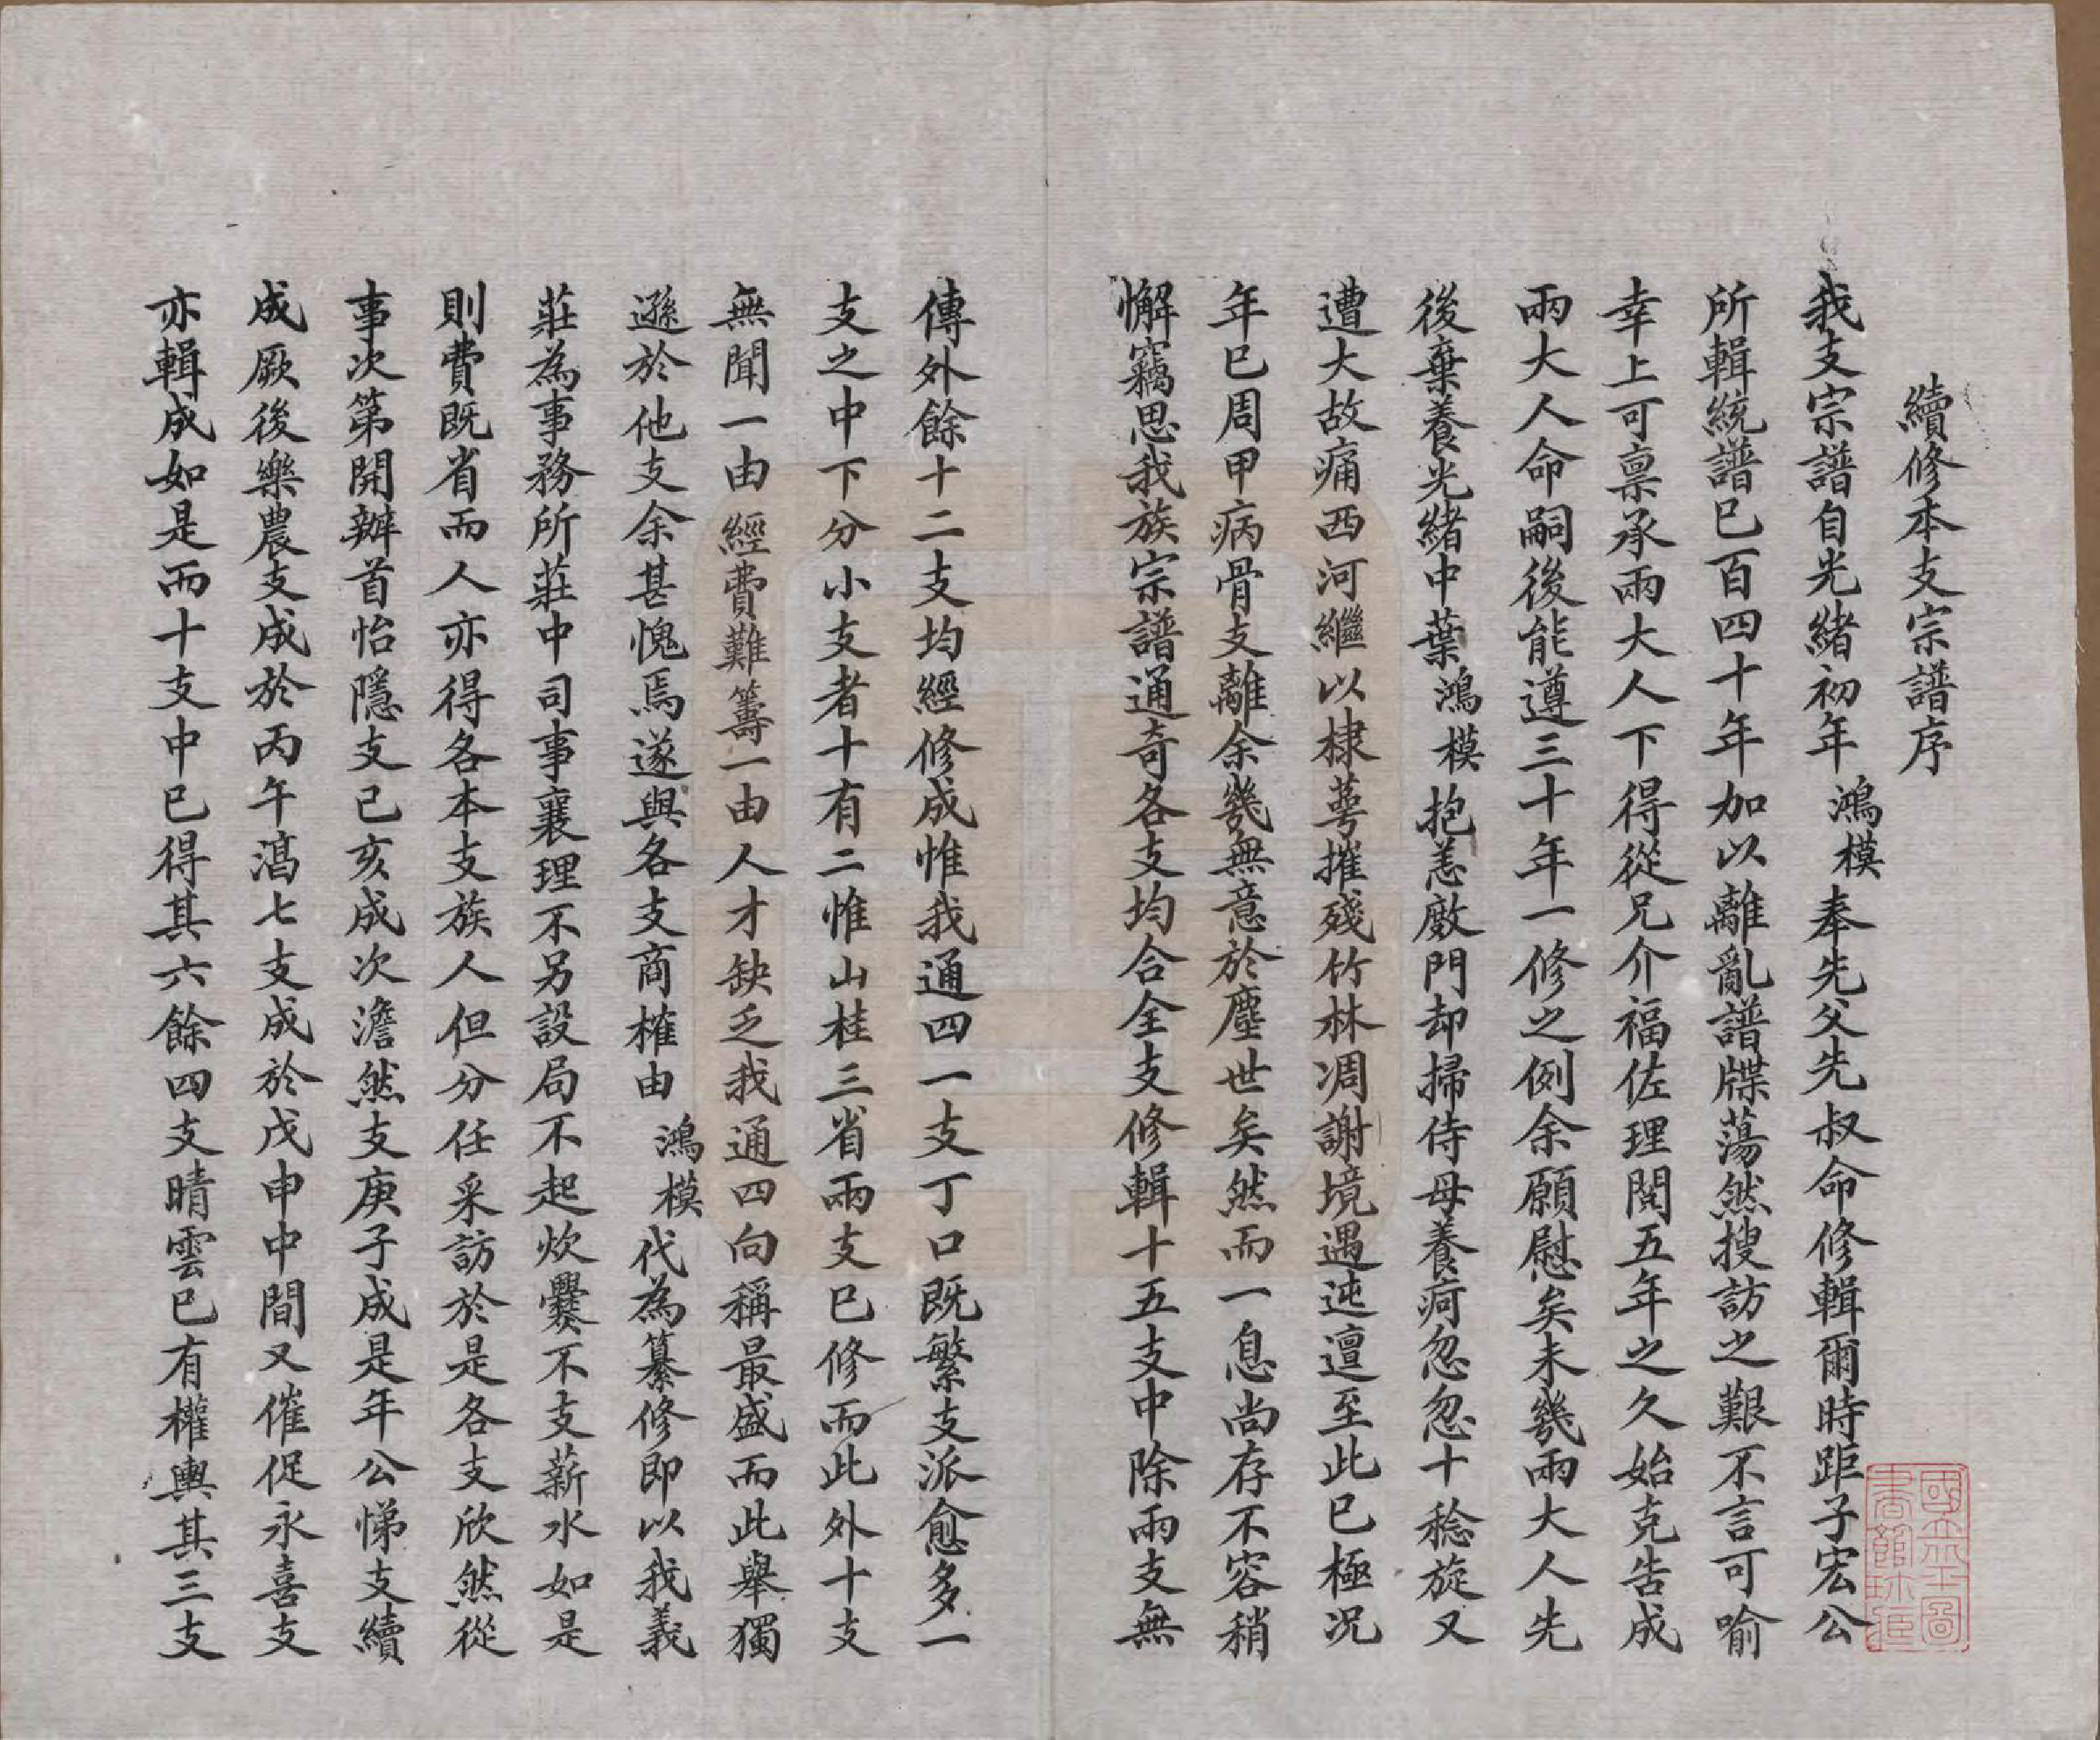 續修本支宗譜序
我支宗譜自光緒初年鴻模奉先父先叔命修輯爾時距子宏公
所輯統譜已百四十年加以離亂譜牒蕩然搜訪之艱不言可喻
幸上可稟承兩大人下得從兄介福佐理閱五年之久始克告成
兩大人命嗣後能遵三十年一修之例余願慰矣未幾兩大人先
後棄養光緒中葉鴻模抱恙廠門却掃侍母養疴忽忽十稔旋又
遭大故痛西河繼以棣萼摧殘竹林凋謝境遇迍邅至此已極况
年已周甲病骨支離余幾無意於塵世矣然而一息尚存不容稍
懈竊思我族宗譜通奇各支均合全支修輯十五支中除兩支無
傳外餘十二支均經修成惟我通四一支丁口既繁支派愈多一
支之中下分小支者十有二惟山桂三省兩支已修而此外十支
無聞一由經費難籌一由人才缺乏我通四向稱最盛而此舉獨
遜於他支余甚愧焉遂與各支商榷由鴻模代為纂修即以我義
莊為事務所莊中司事襄理不另設局不起炊爨不支薪水如是
則費既省而人亦得各本支族人但分任采訪於是各支欣然從
事次第開辦首怡隱支己亥成次澹然支庚子成是年公悌支續
成厥後樂農支成於丙午湻七支成於戊申中間又催促永喜支
亦輯成如是而十支中已得其六餘四支晴雲已有權輿其三支
國立北平圖
書館珍藏